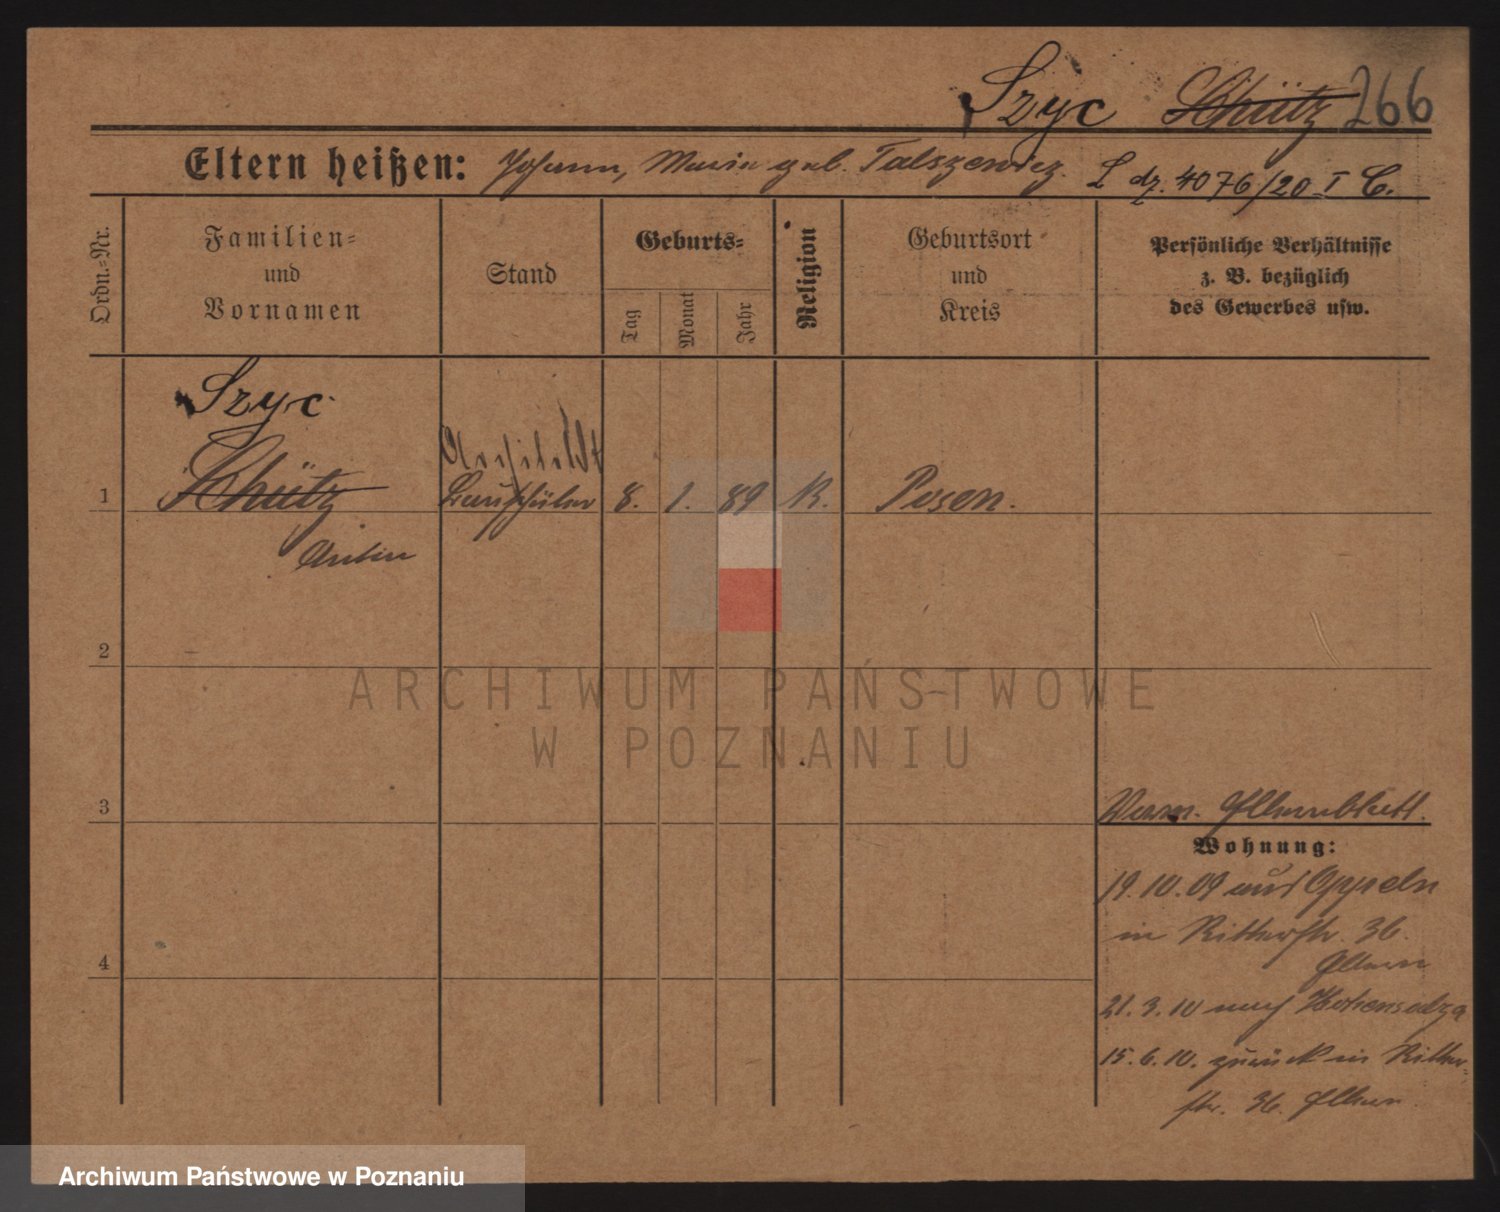 Szyc Schütz 266
Eltern heißen: Johann, Maria geb. Talszewicz. L dz. 4076/20 I C.
Ordn.-Nr.
Familien-
und
Vornamen
Stand
Geburts-
Tag
Monat
Jahr
Religion
Geburtsort
und
Kreis
Persönliche Verhältnisse
z. B. bezüglich
des Gewerbes usw.
Szyc
Architekt
1 Schütz Bauschüler 8. 1. 89 K. Posen.
Anton
2
ARCHIWUM PAŃSTWOWE
W POZNANIU
3 Elternblatt.
Wohnung:
19.10.09 aus Oppeln
in Ritterstr. 36.
Eltern
21.3.10 nach Hohensalza
15.6.10. zurück in Ritter-
str. 36. Eltern
4
Archiwum Państwowe w Poznaniu